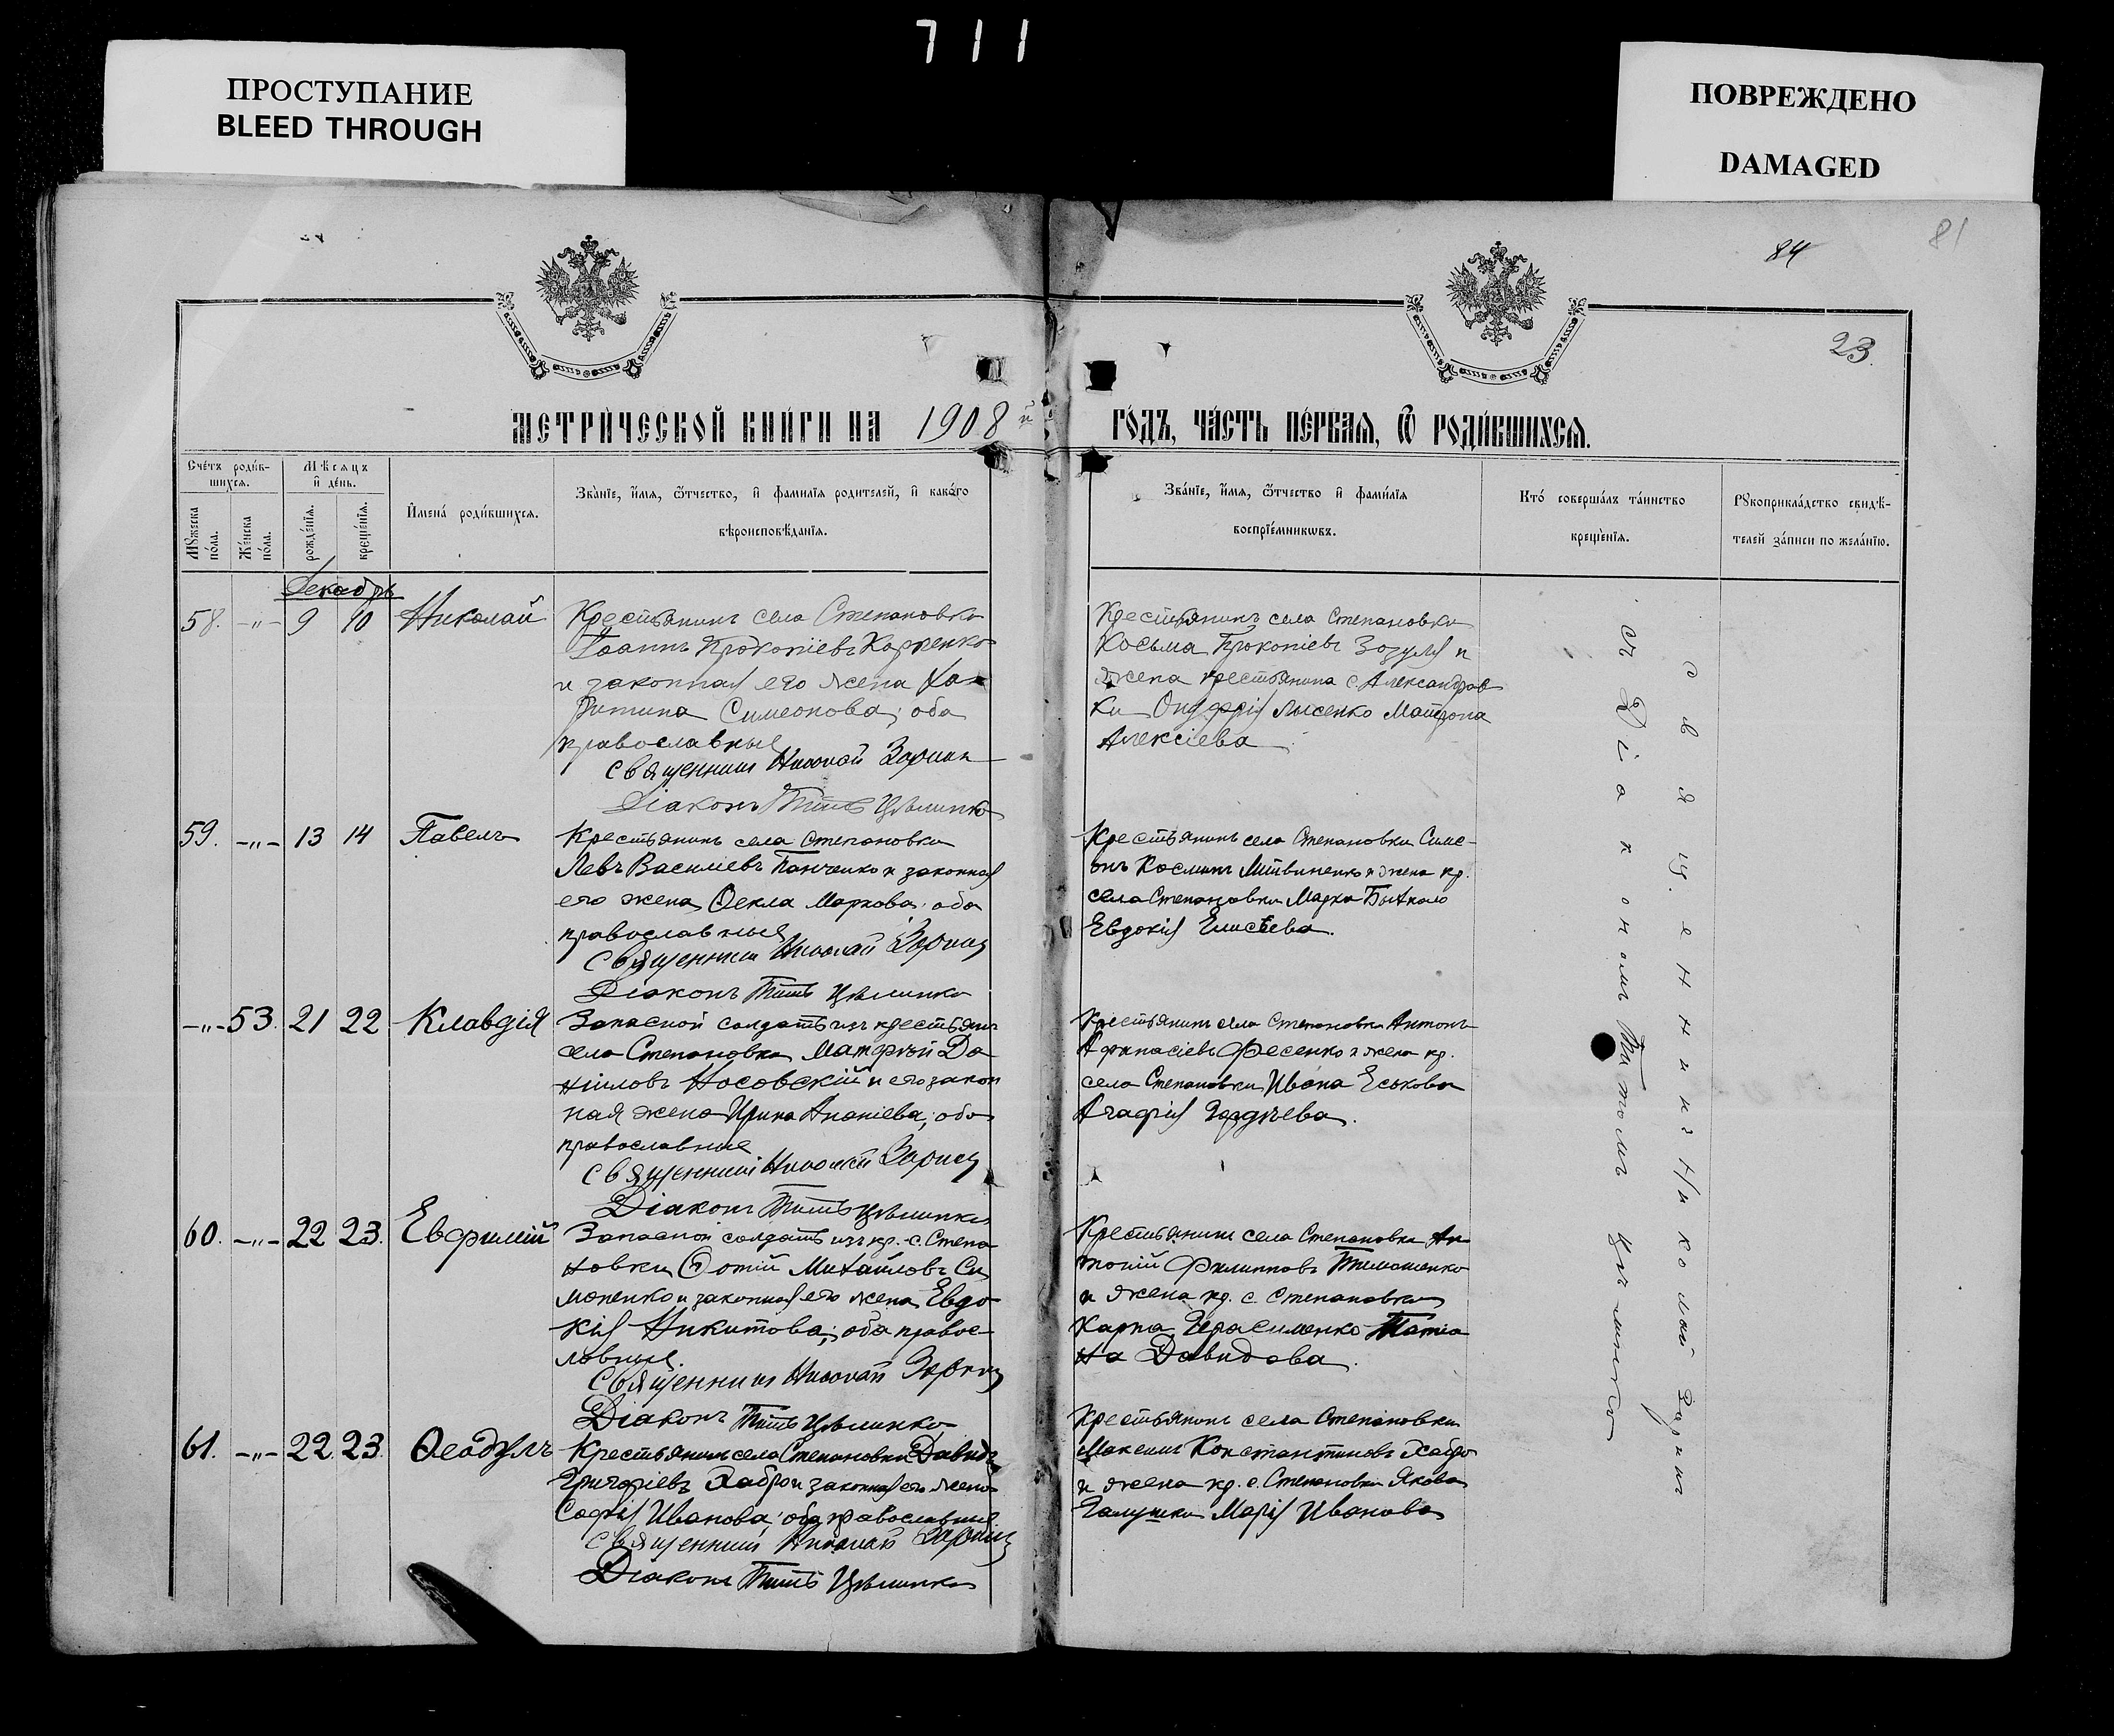 711
ПРОСТУПАНИЕ
BLEED THROUGH
ПОВРЕЖДЕНО
DAMAGED
81
84
23.
МЕТРИ́ЧЕСКОЙ КНИ́ГИ НА 1908 й ГО́ДЪ, ЧА́СТЬ ПЕ́РВАѦ, Ѽ РОДИ́ВШИХСѦ.
Сче́тъ роди́в-
шихсѧ.
Мѣ́сѧцъ
и҆ де́нь.
Мꙋ́жеска
по́ла.
Же́нска
по́ла.
рожде́нїѧ.
креще́нїѧ.
И҆мена̀ роди́вшихсѧ.
Зва́нїе, и҆́мѧ, ѻ҆́тчество, и҆ фами́лїѧ роди́телей, и҆ како́го
вѣроисповѣ́данїѧ.
Зва́нїе, и҆́мѧ, ѻ҆́тчество и҆ фами́лїѧ
воспрїе́мникѡвъ.
Кто̀ соверша́лъ та́инство
креще́нїѧ.
Рꙋкоприкла́дство свидѣ́-
телей за́писи по жела́нїю.
Декабрь
58. -"- 9 10 Николай
Крестьянинъ села Степановки
Іоаннъ Прокопіевъ Карпенко
и законная его жена Ха-
ритина Симеонова; оба
православные
Священникъ Николай Заринъ
Діаконъ Титъ Цѣлинко
Крестьянинъ села Степановки
Косьма Прокопіевъ Зозуля и
жена крестьянина с. Александров-
ки Онуфрія Лысенко Матрона
Алексіева
59. -"- 13 14 Павелъ
Крестьянинъ села Степановки
Левъ Василіевъ Панченко и законная
его жена Ѳекла Маркова; оба
православные
Священникъ Николай Заринъ
Діаконъ Титъ Цѣлинко
Крестьянинъ села Степановки Симе-
онъ Косминъ Литвиненко и жена кр.
села Степановки Марка
Евдокія Елисѣева.
-"- 53. 21 22 Клавдія
Запасной солдатъ изъ крестьянъ
села Степановки Матфѣй Да-
ніиловъ Носовскій и его закон
ная жена Ирина Ананіева; оба
православные
Священникъ Николай Заринъ
Діаконъ Титъ Цѣлинко
Крестьянинъ села Степановки Антонъ
Афанасіевъ Фесенко и жена кр.
села Степановки Ивана Еськова
Агафія Гордѣева.
60. -"- 22 23. Евфимій
Запасной солдатъ изъ кр. с. Степа
новки Фотій Михайловъ Си
моненко и законная его жена Евдо
кія Никитова; оба право-
славные.
Священникъ Николай Заринъ
Діаконъ Титъ Цѣлинко
Крестьянинъ села Степановки Ан-
тоній Филипповъ Тимошенко
и жена кр. с. Степановки
Карпа Герасименко Татіа
на Давидова.
61. -"- 22. 23. Ѳеодулъ
Крестьянинъ села Степановки Давидъ
Григоріевъ Хабро и законная его жена
Софія Иванова; оба православные
Священникъ Николай Заринъ
Діаконъ Титъ Цѣлинко
Крестьянинъ села Степановки
Максимъ Константиновъ Хабро
и жена кр. с. Степановки Якова
Галушки Марія Иванова
Священникъ Николай Заринъ
съ Діакономъ Титомъ Цѣлинко